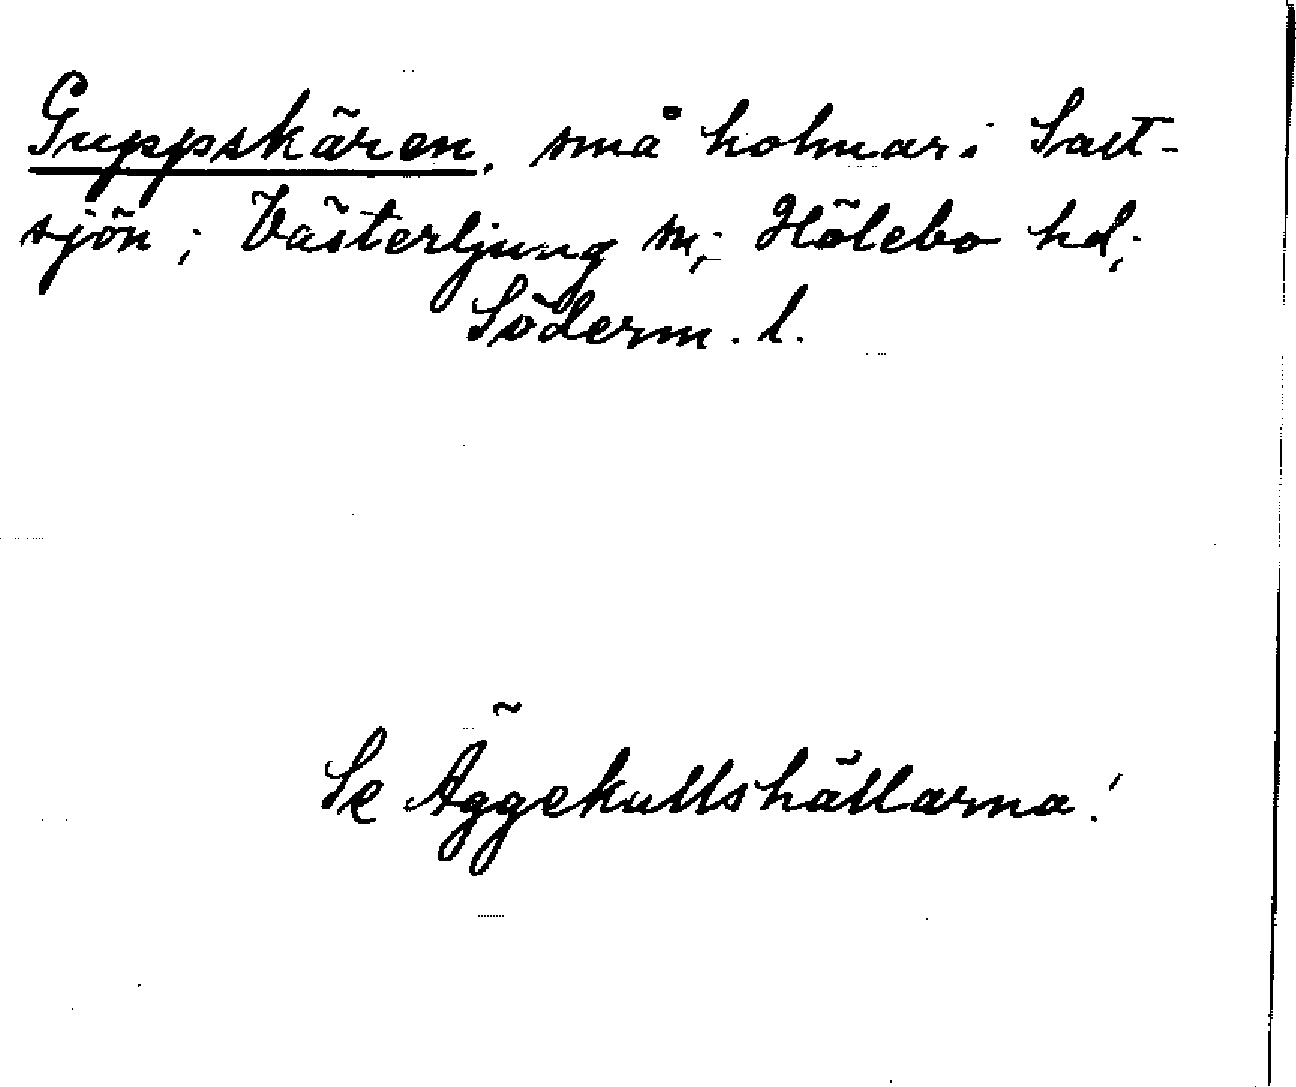 Guppskären, små holmar i Salt-
sjön; Västerljung sn; Hölebo hd;
Söderm. l.
Se Äggekullshällarna!